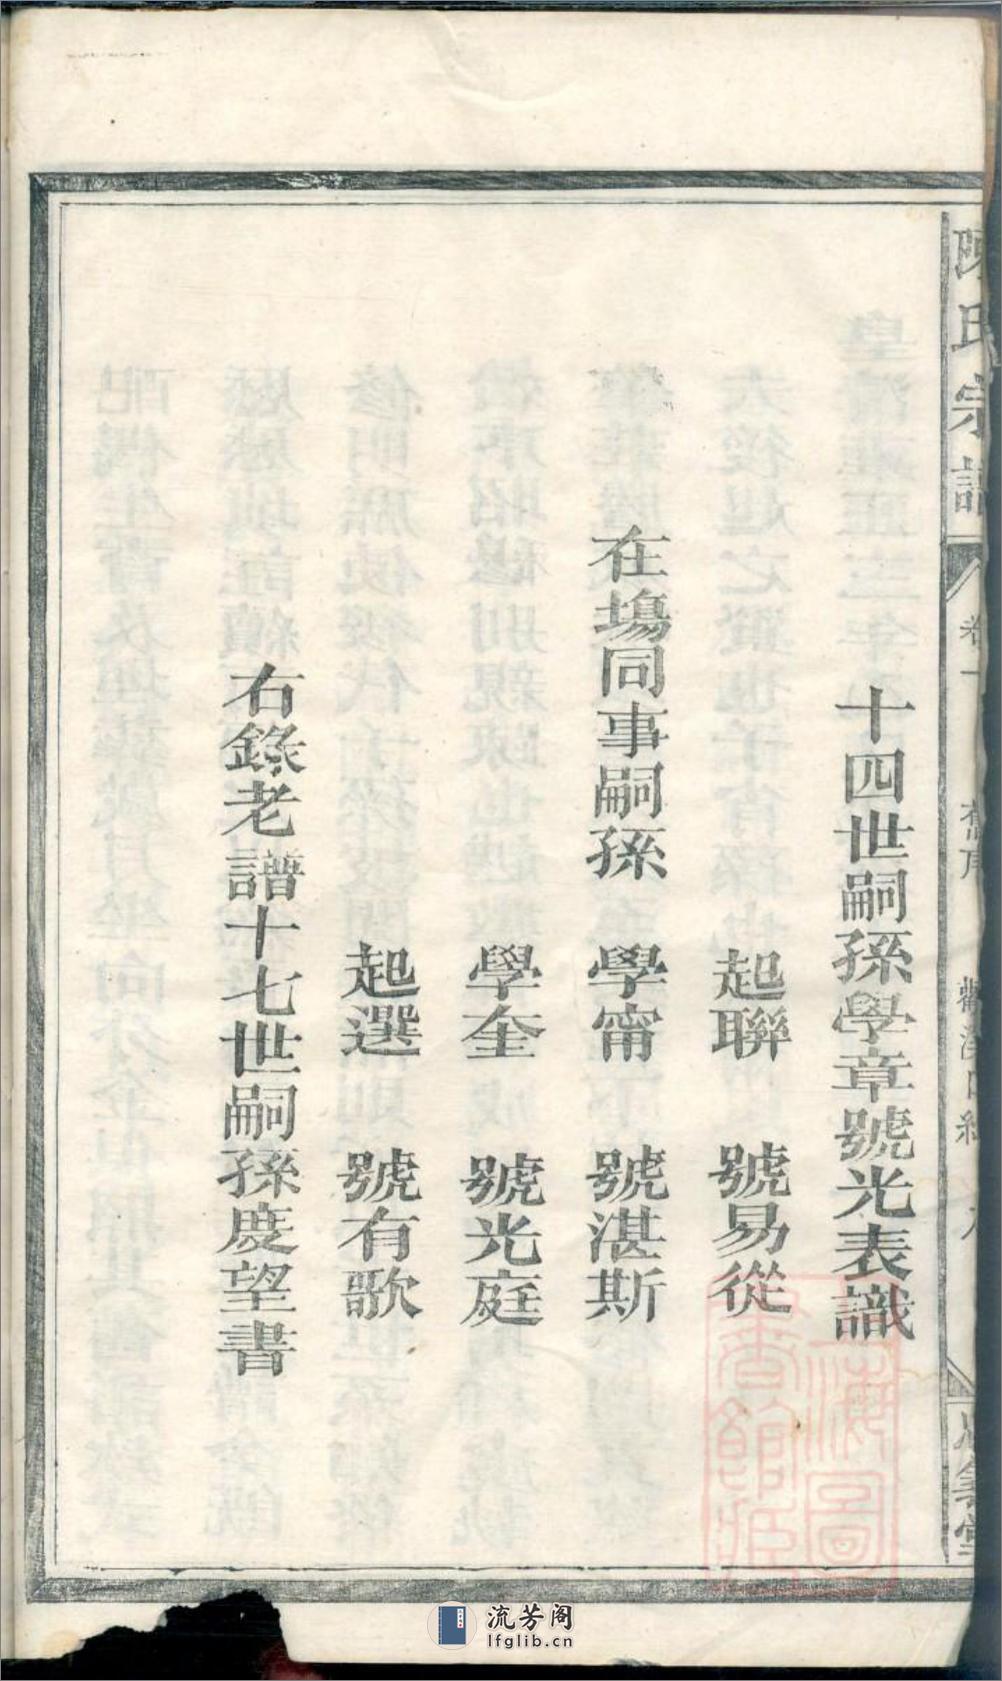 十四世嗣孫學章號光表識
起聯 號易從
在塲同事嗣孫 學甯 號湛斯
學奎 號光庭
起選 號有歌
右錄老譜十七世嗣孫慶望書
陳氏宗譜
卷一
舊序
上海圖書館藏
流芳阁
lfglib.cn